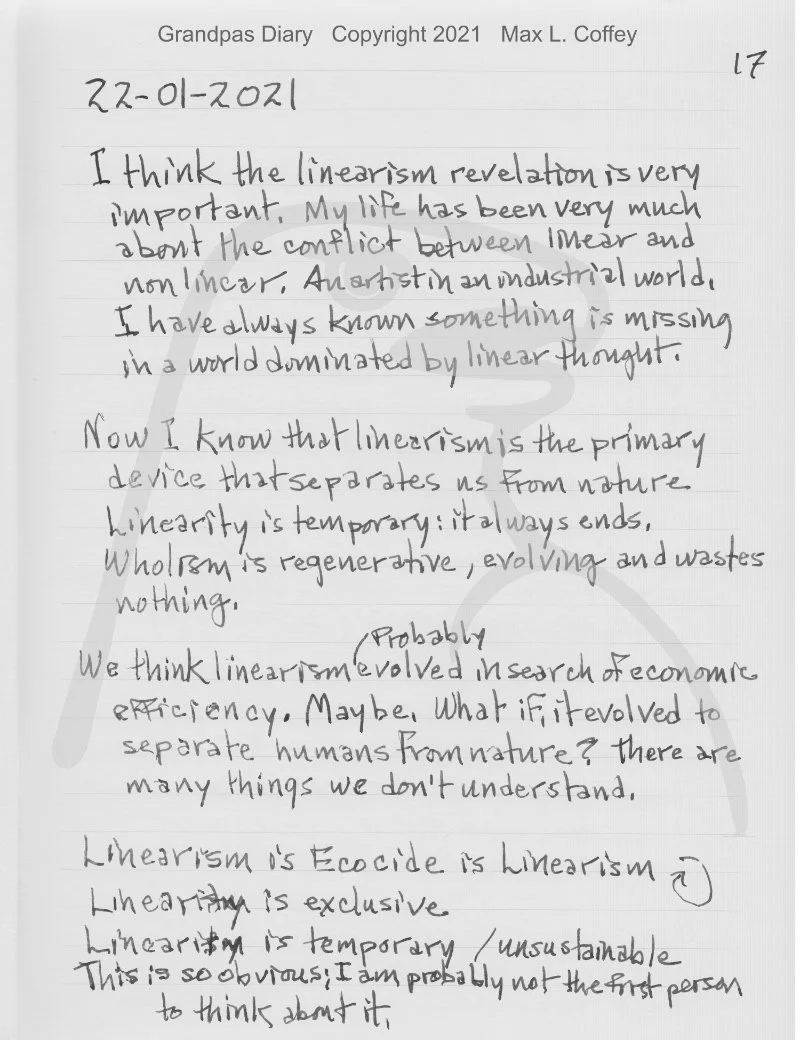 Grandpas Diary Copyright 2021 Max L. Coffey
17
22-01-2021
I think the linearism revelation is very
important. My life has been very much
about the conflict between linear and
non linear. An artist in an industrial world.
I have always known something is missing
in a world dominated by linear thought.
Now I know that linearism is the primary
device that separates us from nature.
Linearity is temporary: it always ends.
Wholism is regenerative, evolving and wastes
nothing.
Probably
We think linearism evolved in search of economic
efficiency. Maybe. What if, it evolved to
separate humans from nature? There are
many things we don't understand.
Linearism is Ecocide is Linearism
Linearity is exclusive.
Linearity is temporary / unsustainable
This is so obvious; I am probably not the first person
to think about it.